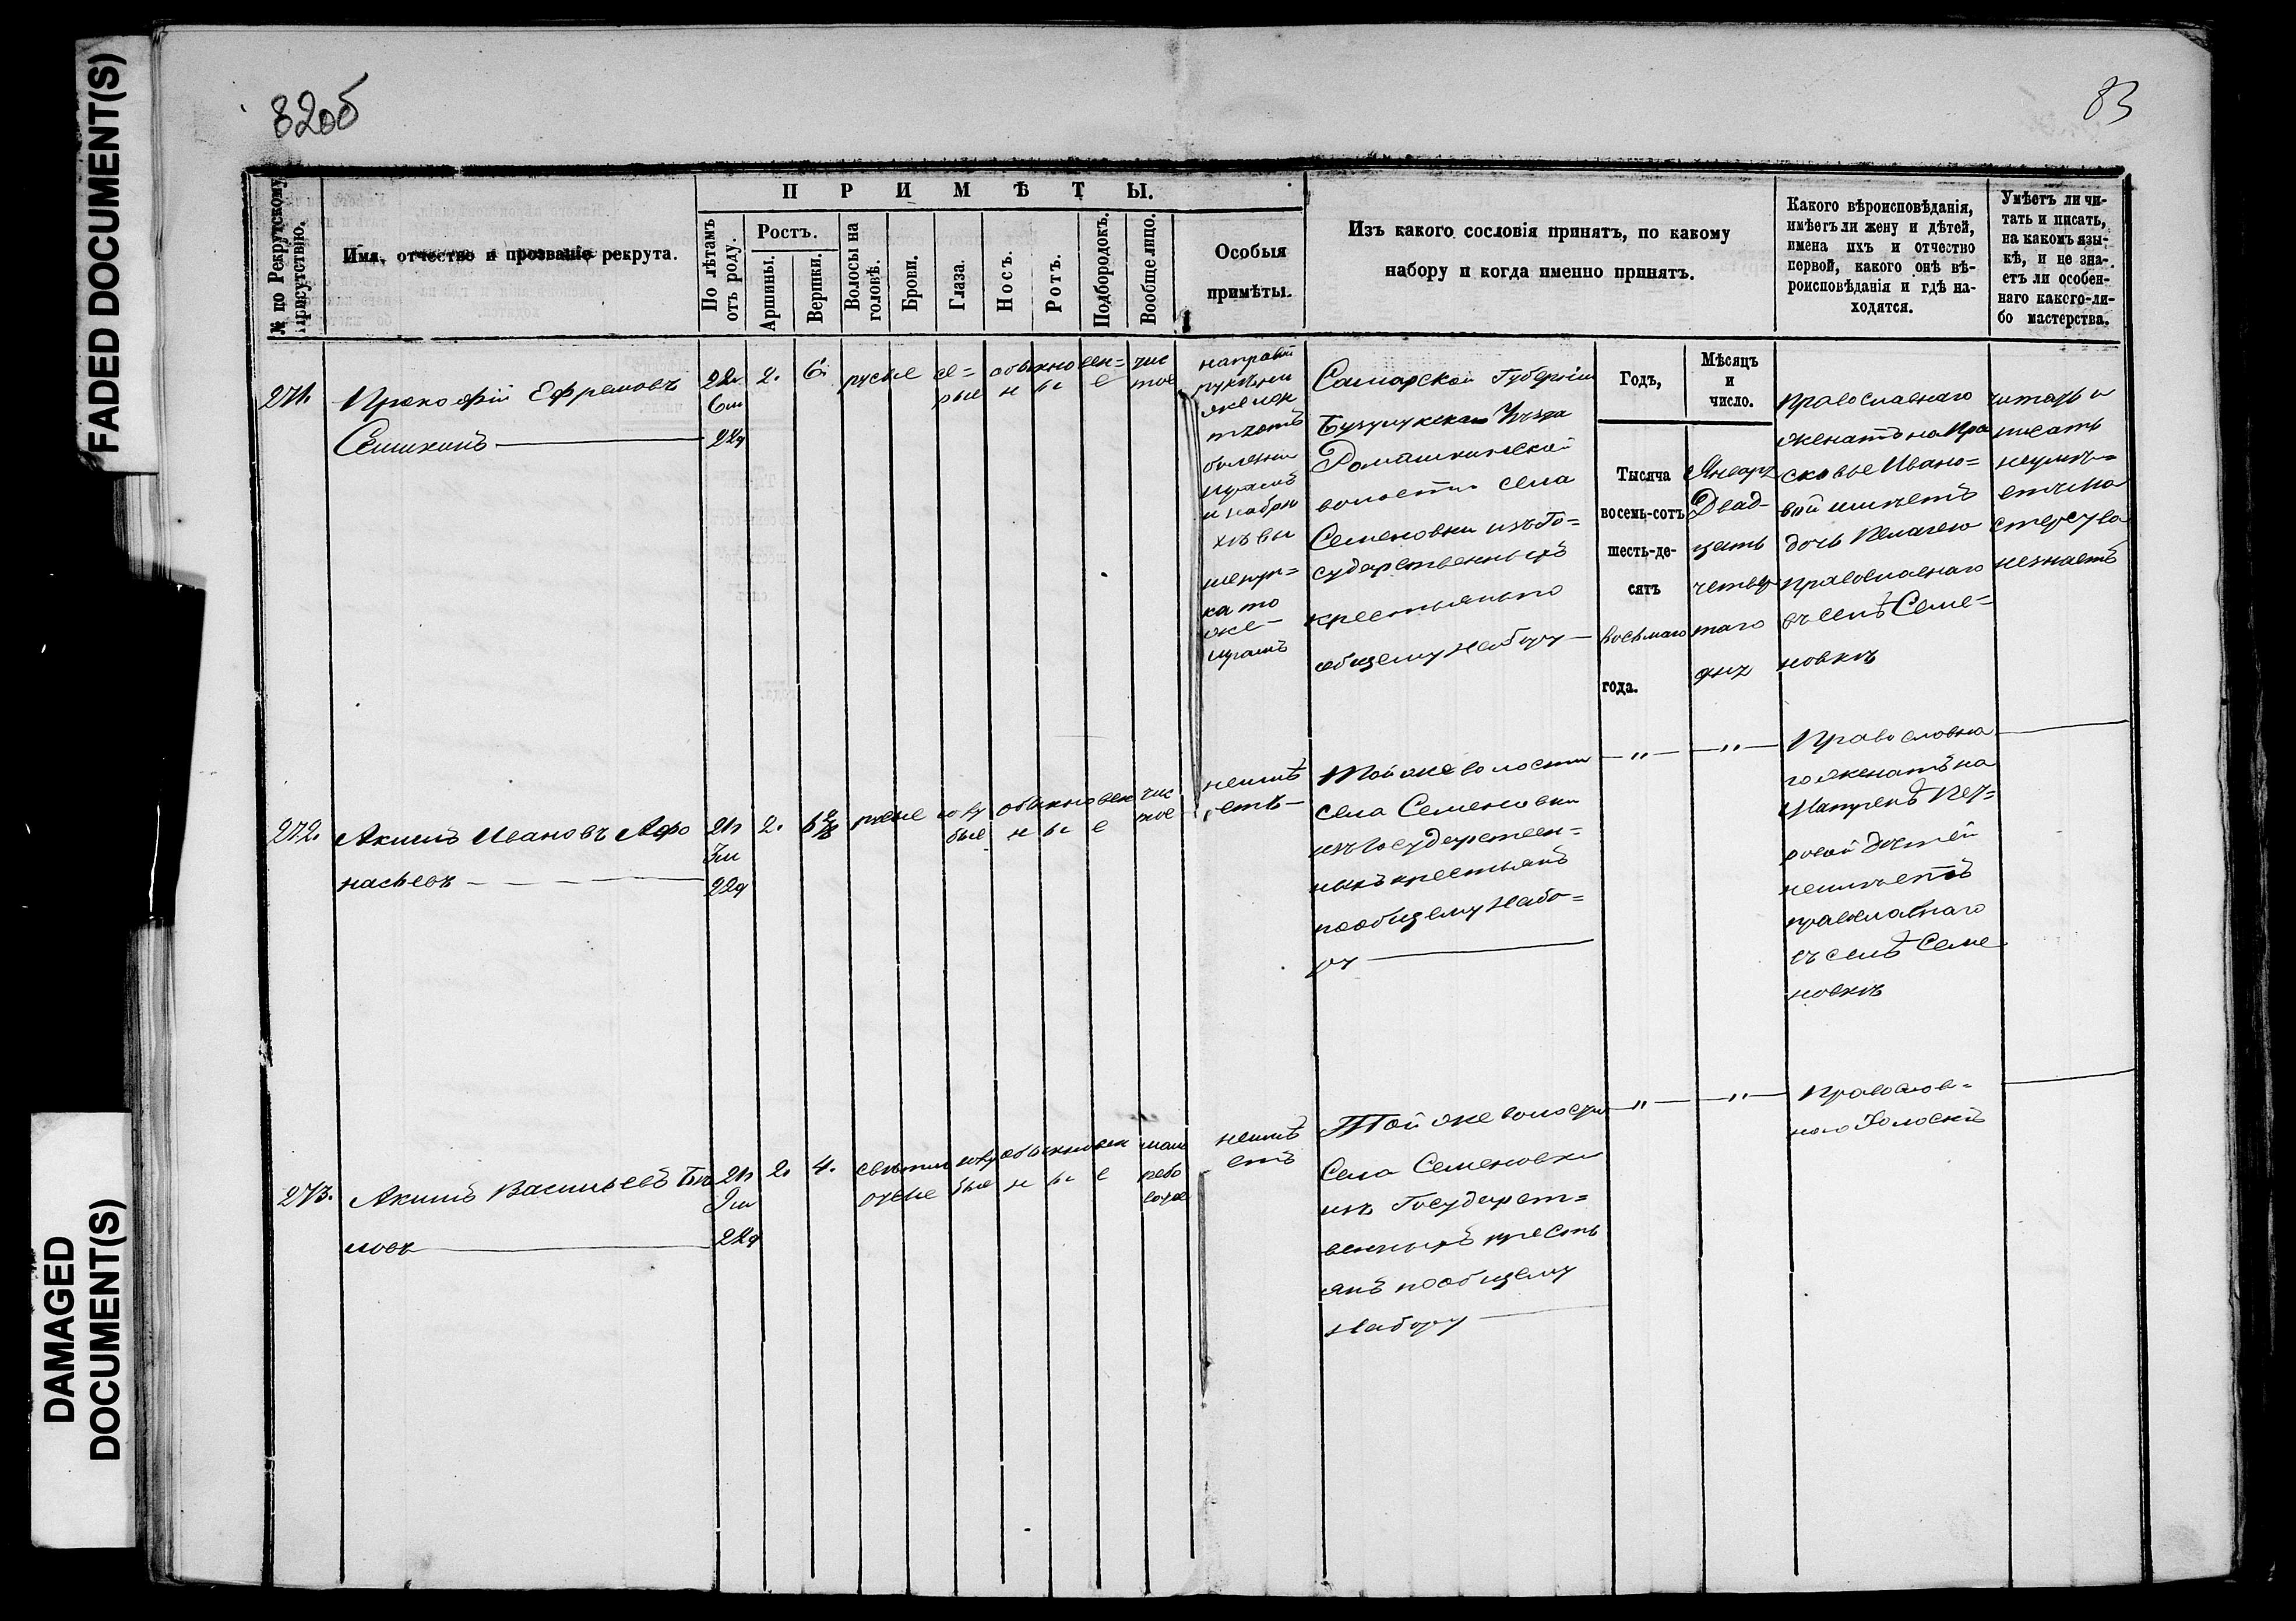 FADED DOCUMENT(S)
DAMAGED
DOCUMENT(S)
82об
83
№ по Рекрутскому
Присутствію.
Имя, отчество и прозваніе рекрута.
ПРИМѢТЫ.
По лѣтамъ
отъ роду.
Ростъ.
Аршины.
Вершки.
Волосы на
головѣ.
Брови.
Глаза.
Носъ.
Ротъ.
Подбородокъ.
Вообще лицо.
Особыя
примѣты.
Изъ какого сословія принятъ, по какому
набору и когда именно принятъ.
Какого вѣроисповѣданія,
имѣетъ ли жену и дѣтей,
имена ихъ и отчество
первой, какого онѣ вѣ-
роисповѣданія и гдѣ на-
ходятся.
Умѣетъ ли чи-
тать и писать,
на какомъ язы-
кѣ, и не зна-
етъ ли особен-
наго какого-ли-
бо мастерства.
271.
Прокофій Ефремовъ
Семикинъ
22л
6м
22д
2.
6.
русые
се=
рые
обыкновен=
н ы е
чис
тое
на правой
ка то
же
шрамъ
Самарской Губерніи
Бузулукскаго Уѣзда
Ромашкинской
волости села
Семеновки изъ Го=
сударственныхъ
крестьян по
общему набору
Годъ,
Тысяча
восемь-сотъ
шесть-де-
сятъ
восьмаго
года.
Мѣсяцъ
и
число.
Январь
Двад-
цать
четвер
таго
дня
Православнаго
женатъ на Пра
сковье Ивано=
вой имѣетъ
дочь Пелагею
православнаго
въ селѣ Семе=
новкѣ
читать и
писать
неумѣ=
етъ ма
стерства
незнаетъ
272.
Акимъ Ивановъ Афо
насьевъ
21л
3м
22д
2.
русые
голу
бые
обыкновен
н ы е
чис
тое
неимѣ
етъ
Той же волости
села Семеновки
изъ Государствен=
ныхъ крестьянъ
по общему набо=
ру
— " —
— " —
Православна
го женатъ на
Матренѣ Пет=
ровой детей
неимѣетъ
православнаго
въ селѣ Семе
новкѣ
273.
Акимъ Васильевъ
ловъ
21л
9м
22д
2.
4.
светло
русые
голу
бые
обыкновен
н ы е
мало
рябо
ватое
неимѣ
етъ
Той же волости
Села Семеновки
изъ Государст=
венныхъ кресть
янъ по общему
набору
— " —
— " —
Православ=
наго Холостъ